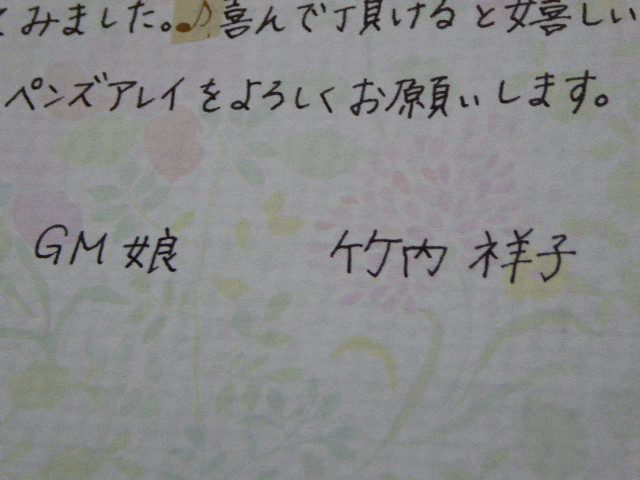 てみました。♪喜んで頂けると嬉しい
ペンズアレイをよろしくお願いします。
GM娘 竹内 祥子